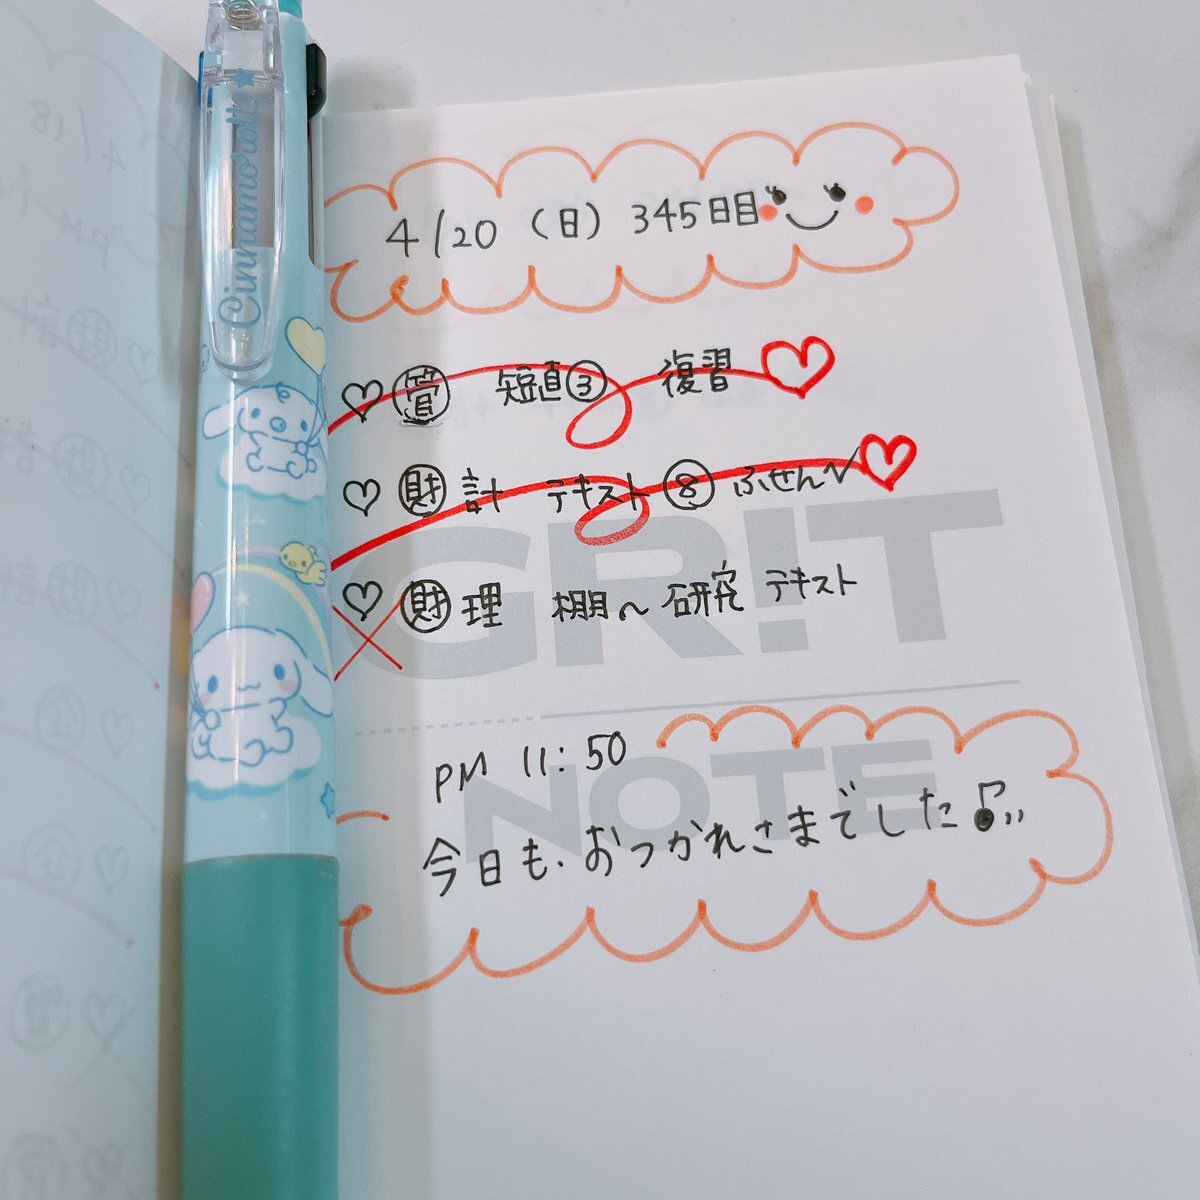 Cinnamoroll
4/20 (日) 345日目
♡ 管 短直③ 復習
♡ 財計 テキスト⑧ ふせん✓
♡ 財理 棚〜研究 テキスト
GRIT
PM 11:50
NOTE
今日も、おつかれさまでした♪